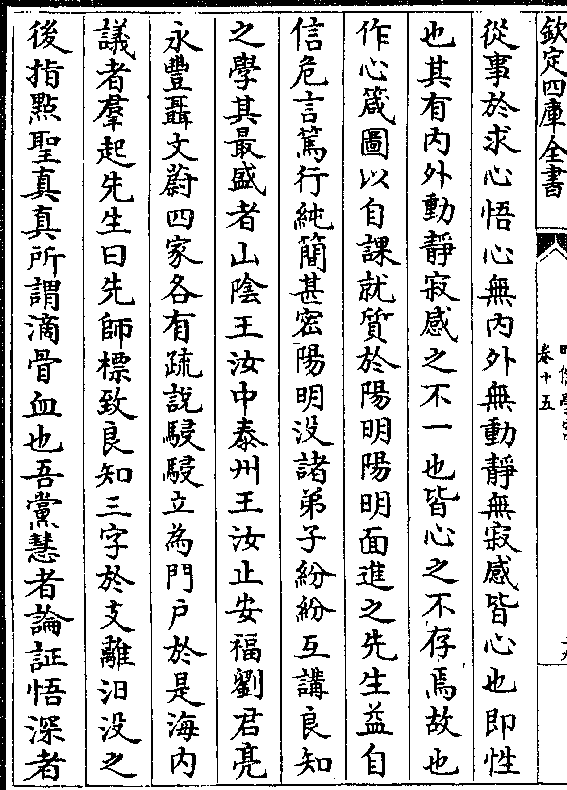 欽定四庫全書
卷十五
從事於求心悟心無內外無動靜無寂感皆心也即性
也其有內外動靜寂感之不一也皆心之不存焉故也
作心箴圖以自課就質於陽明陽明面進之先生益自
信危言篤行純簡甚宻陽明没諸弟子紛紛互講良知
之學其最盛者山陰王汝中泰州王汝止安福劉君亮
永豐聶文蔚四家各有疏說駸駸立為門户於是海内
議者羣起先生曰先師標致良知三字於支離汨没之
後指點聖真真所謂滴骨血也吾黨慧者論証悟深者